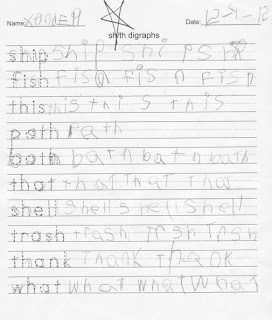 Name: xander Date: 12-1-12
sh/th digraphs
ship ship shi ps hi
fish fish fish fish
this this this this
path path
bath bath bath bath
that that that that
shell shell shell shell
trash trash trsh trash
thank thank thank
what what what what